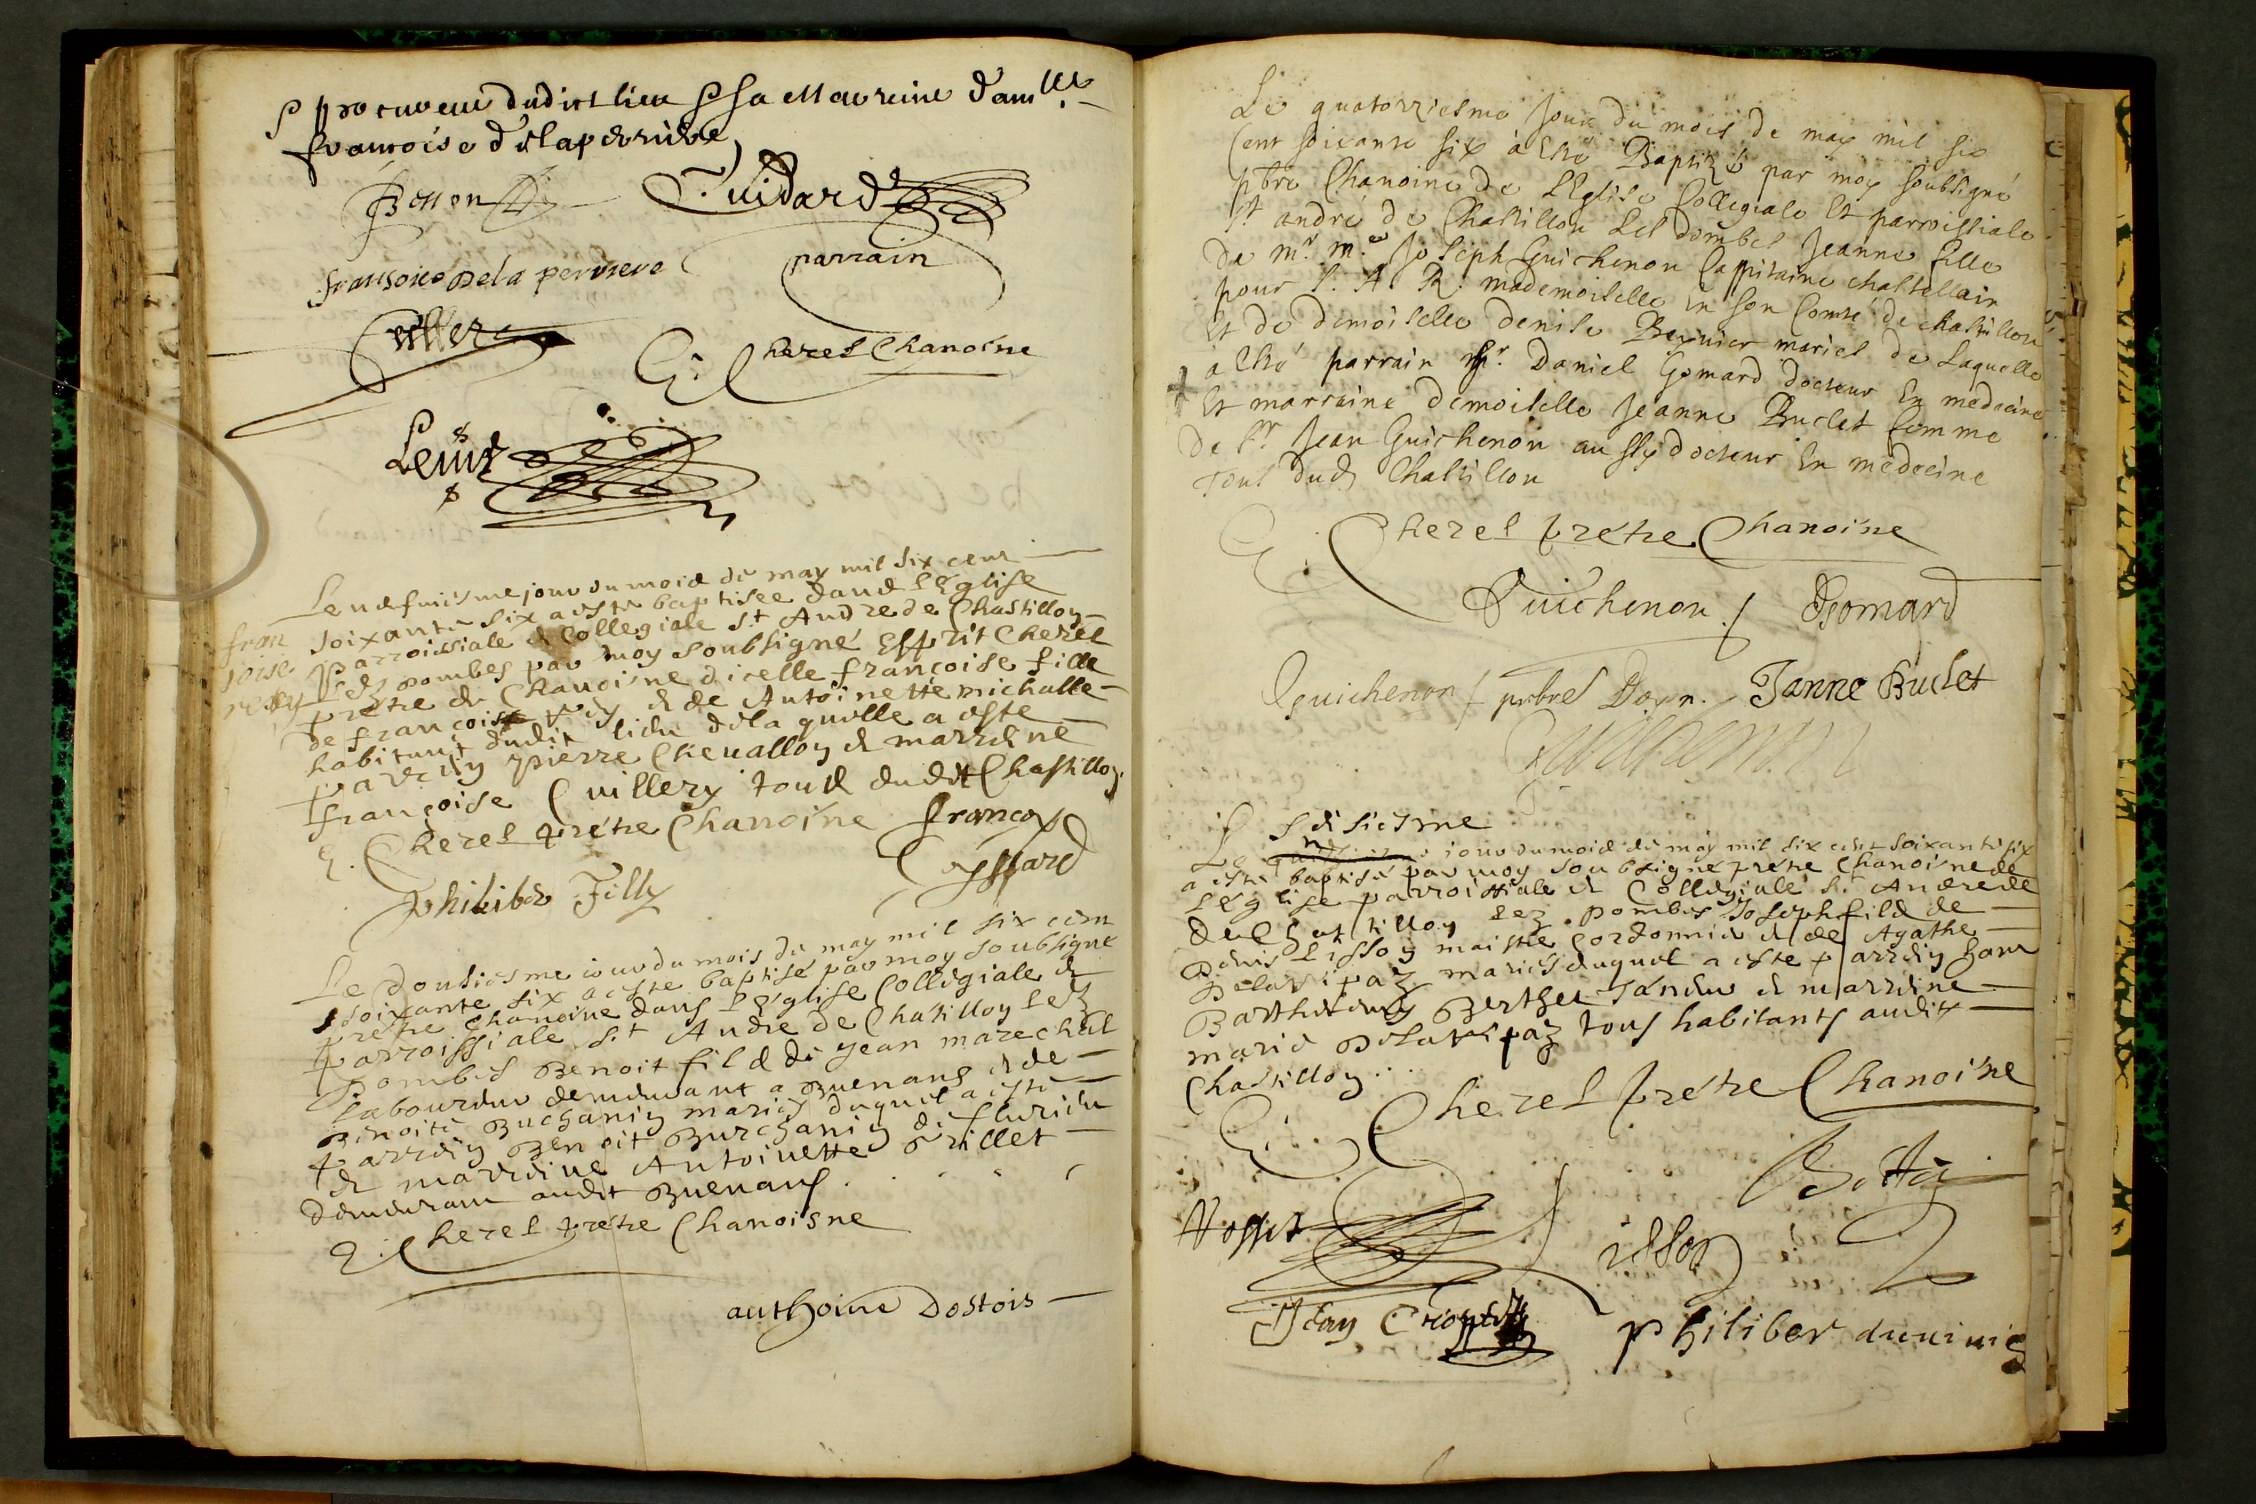 procureur dudict lieu & sa marreine damlle
francoise delaperriere
Besson Guidard
fransoise Dela perriere parrain
Cuillery
E. Cherel Chanoine
Le neufuiesme jour du mois de may mil six cent
soixante six a esté baptisee dans l'Eglise
fran
parroissiale et Collegiale St Andre de Chastillon
soise
lez Dombes par moy soubsigné Esprit Cherel
prêtre et Chanoisne dicelle françoise fille
de françois et de Antoinette michalle
habitant dudit lieu de la quelle a este
parrein pierre Cheuallon et marreine
françoise Cuillery tous dudit Chastillon
E. Cherel prétre Chanoine françoys
Cyssard
philiber Filly
Le dousiesme iour du mois de may mil six cent
soixante six a este baptisé par moy soubsigné
prétre Chanoine dans l'Eglise Collegiale et
parroissiale St Andre de Chastillon lez
Dombes Benoit fils de Jean marechal
laboureur demeurant a Buenans et de
Benoite Buchanin mariés duquel a este
parrein Benoit Burchanin de fleurieu
et marreine Antoinette Grillet
demeurant audit Buenans
E. Cherel prétre Chanoisne
anthoine Dostois
Le quatorziesme Jour du mois de may mil six
Cent soixante six à Esté Baptizé par moy soubsigné
pbre Chanoine de L'Eglise Collegiale Et parroissiale
St andré de Chastillon Les dombes Jeanne fille
de mr. me. Joseph Guichenon Cappitaine chastellain
pour S. A. R. mademoiselle En son Comté de chastillon
Et de demoiselle denise Bernier mariés de Laquelle
à Esté parrain Mr. Daniel Gomard docteur En medecine
Et marraine demoiselle Jeanne Buclet femme
de Sr Jean Guichenon aussy docteur En medecine
Tous dud Chastillon
E. Cherel prétre Chanoine
Guichenon Gomard
Guichenon pbre Doyen. Janne Buclet
disiesme
Le iour du mois de may mil six cent soixante six
a esté baptisé par moy soubsigné prétre Chanoisne de
l'Eglise parroissiale et Collegiale St Andre de
de Chastillon lez Dombes Joseph fils de
Denis Lisson maistre Cordonnier et de Agathe
mariés duquel a este parrein hon
Berthet et marreine
marie tous habitants audit
Chastillon
E. Cherel prétre Chanoine
Jean
philiber